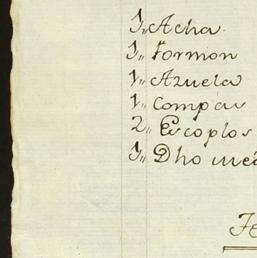 1,, Acha
1,, Formon
1,, Azuela
1,, Compas
2,, Escoplos
1,, Dho